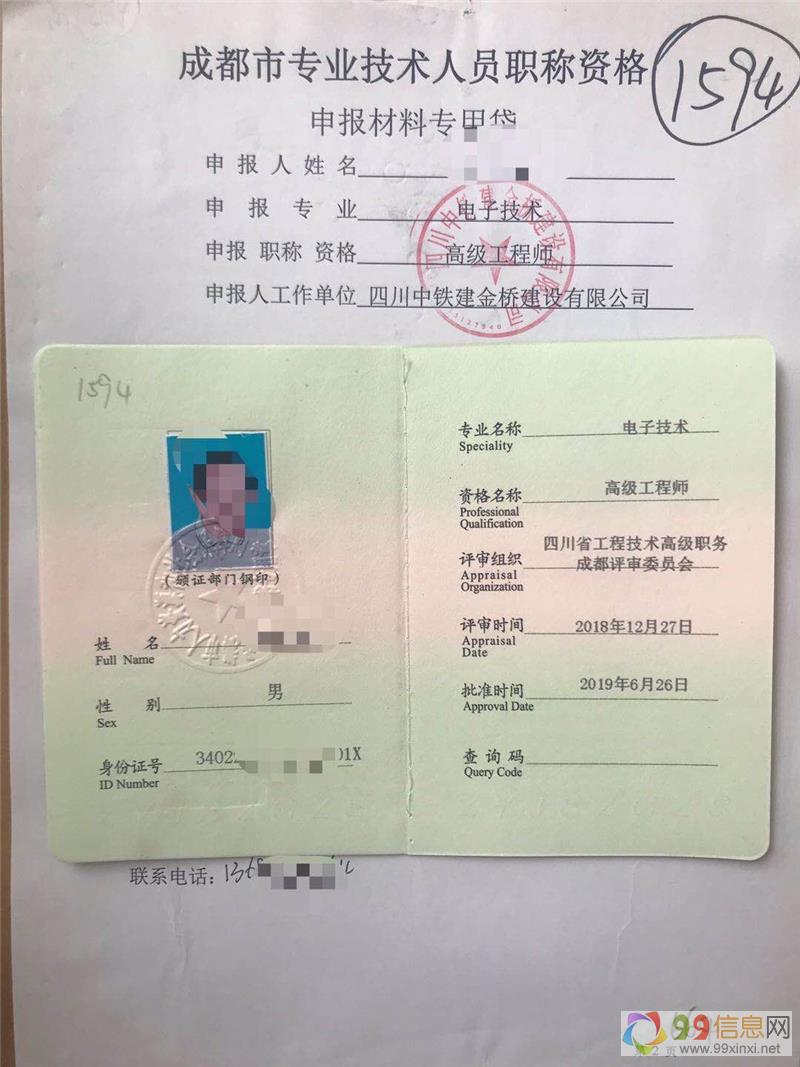 成都市专业技术人员职称资格
1594
申报材料专用袋
申报人姓名
申报专业 电子技术
申报职称资格 高级工程师
申报人工作单位 四川中铁建金桥建设有限公司
1594
(颁证部门钢印)
姓名
Full Name
性别 男
Sex
身份证号 3402 01X
ID Number
专业名称 电子技术
Speciality
资格名称 高级工程师
Professional
Qualification
评审组织 四川省工程技术高级职务
成都评审委员会
Appraisal
Organization
评审时间 2018年12月27日
Appraisal
Date
批准时间 2019年6月26日
Approval Date
查询码
Query Code
联系电话:
99信息网
www.99xinxi.net
第2页